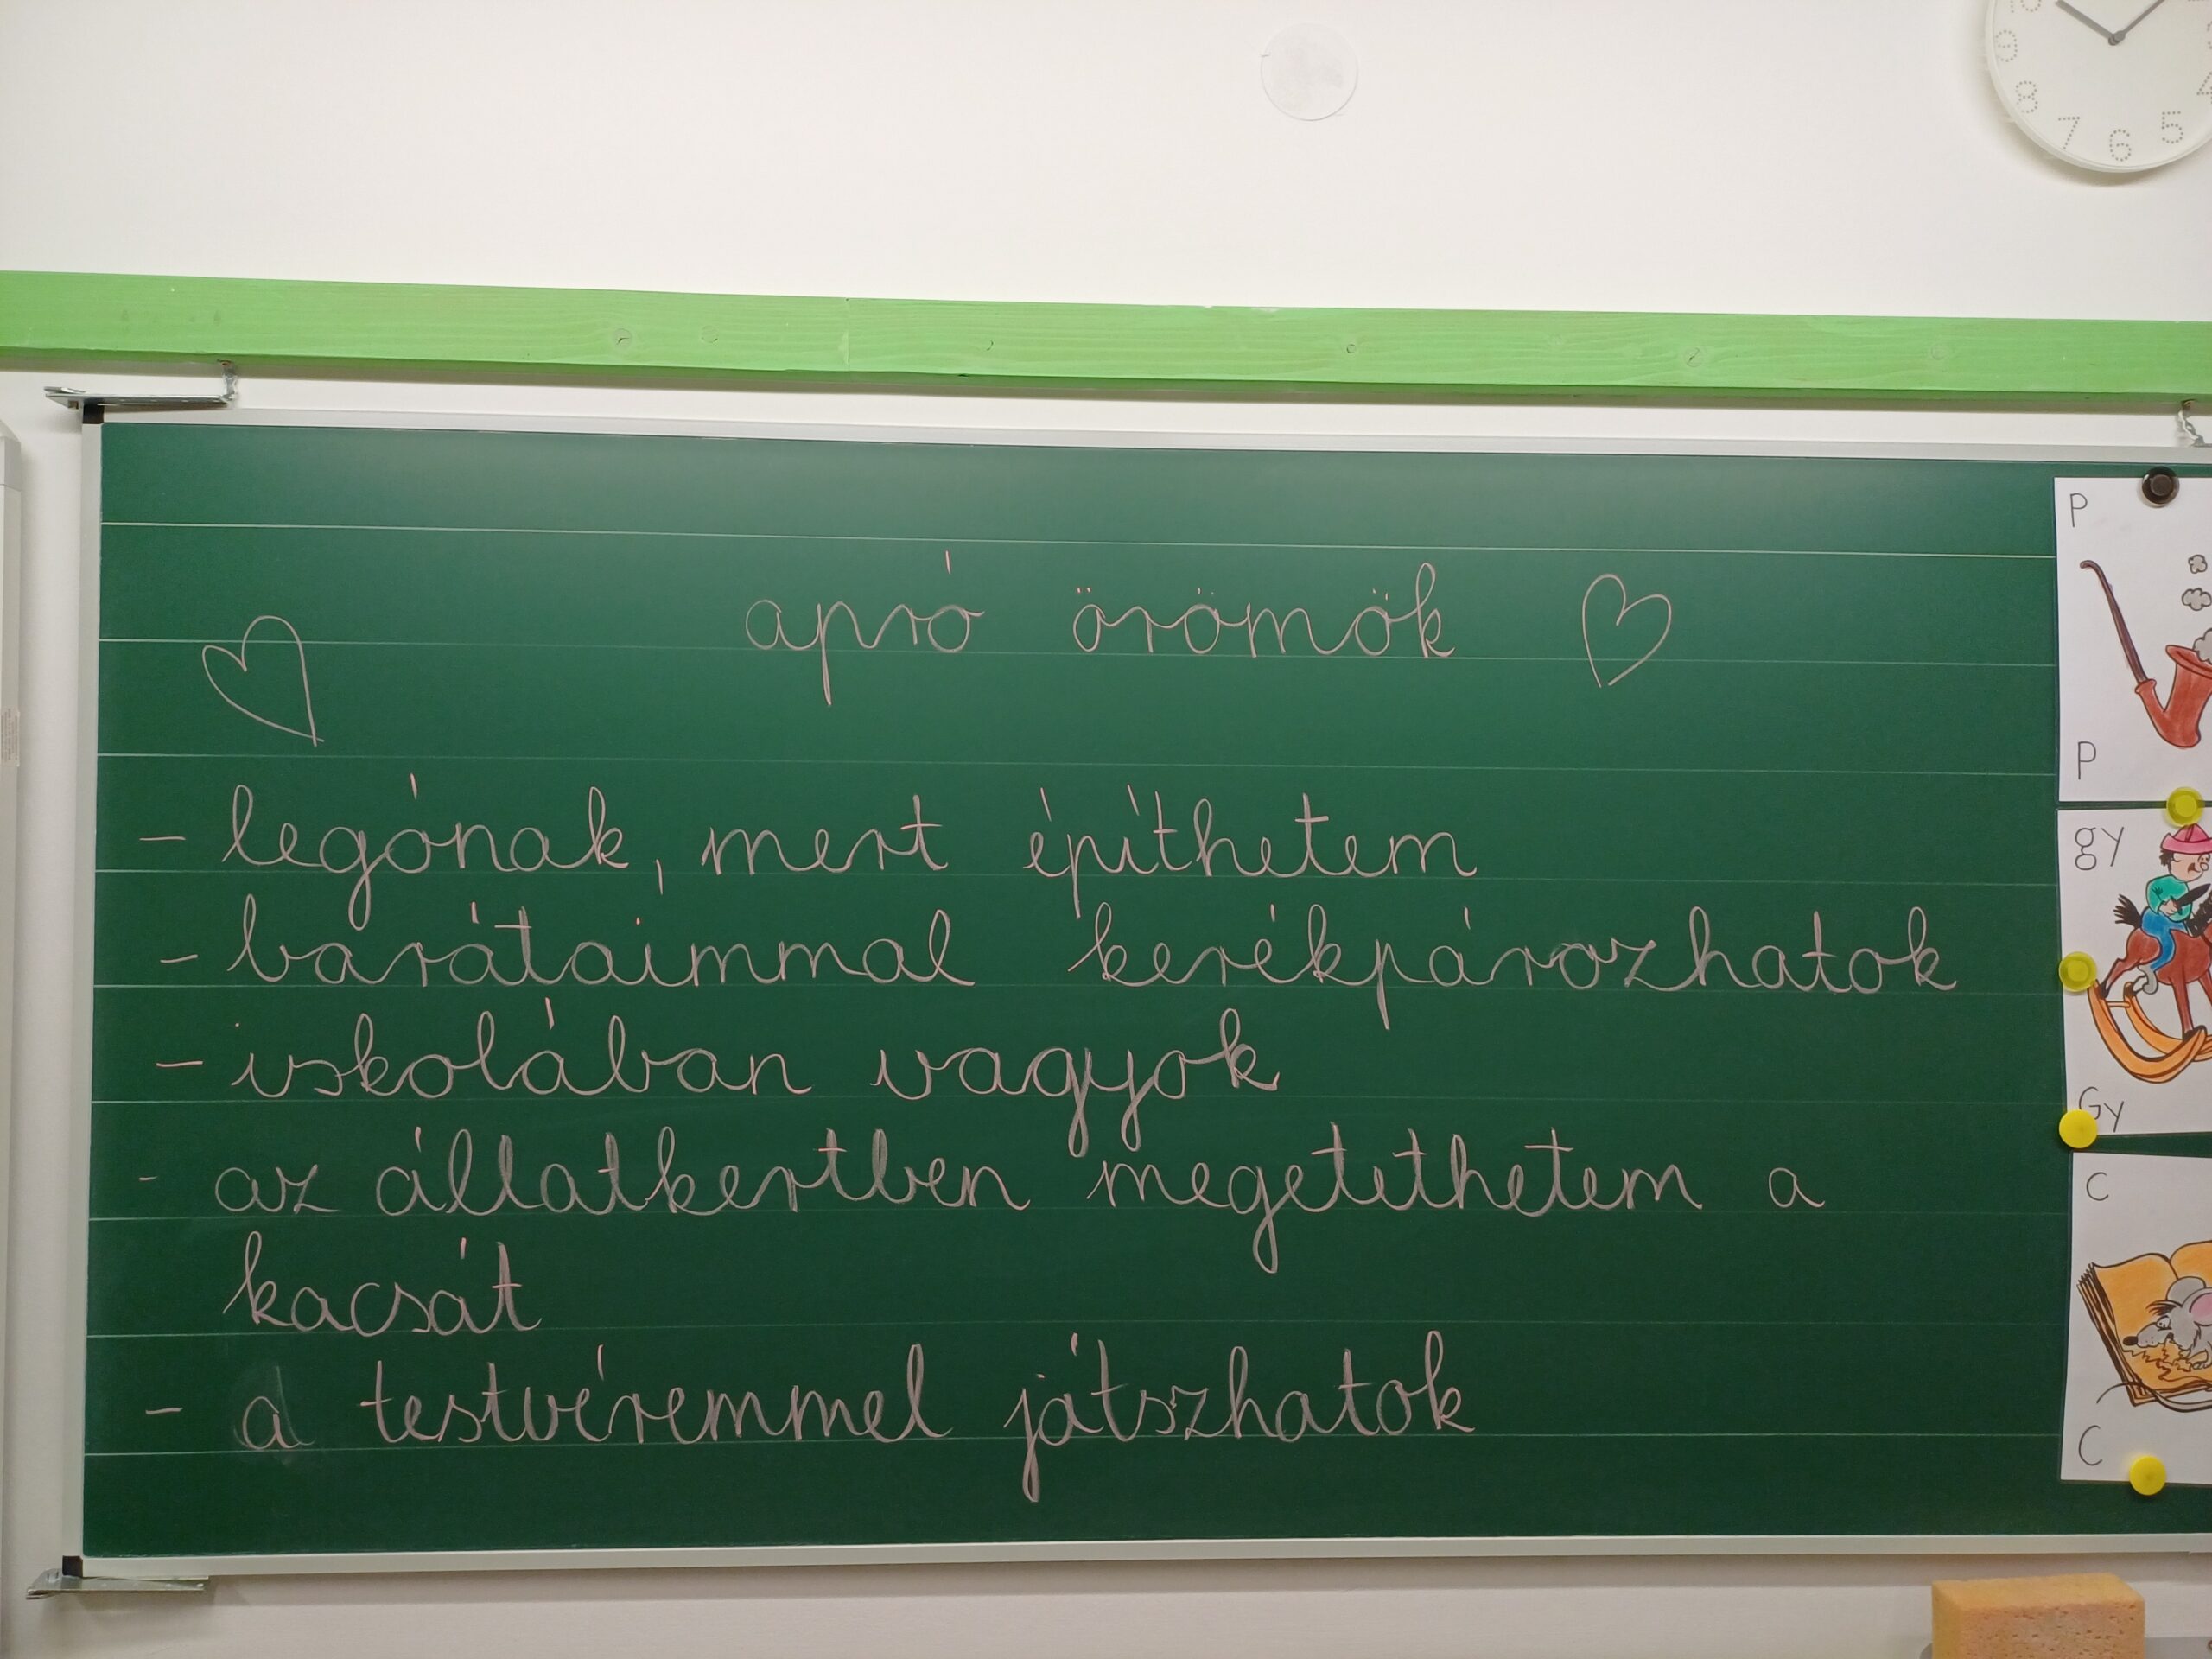 10
9
8
7
6
5
4
apró örömök
- legónak, mert építhetem
- barátaimmal kerékpározhatok
- iskolában vagyok
- az állatkertben megetethetem a
kacsát
- a testvéremmel játszhatok
P
P
gy
Gy
C
C